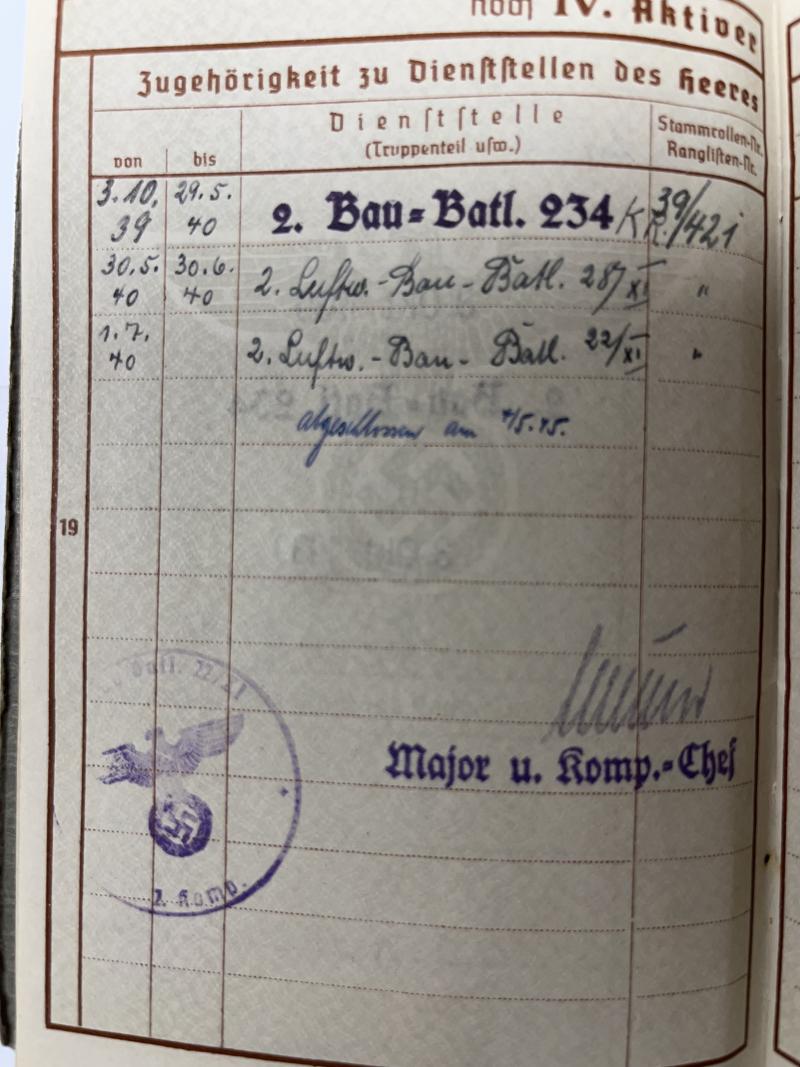 noch IV. Aktiver
Zugehörigkeit zu Dienststellen des Heeres
von
bis
Dienststelle
(Truppenteil usw.)
Stammrollen-Nr.
Ranglisten-Nr.
3.10. 39
29.5. 40
2. Bau-Batl. 234 K
39/421
30.5. 40
30.6. 40
2. Luftw.-Bau-Batl. 28/XI
"
1.7. 40
2. Luftw.-Bau-Batl. 22/XI
"
abgeschlossen am
19
Batl. 22/XI
Major u. Komp.-Chef
2. Komp.